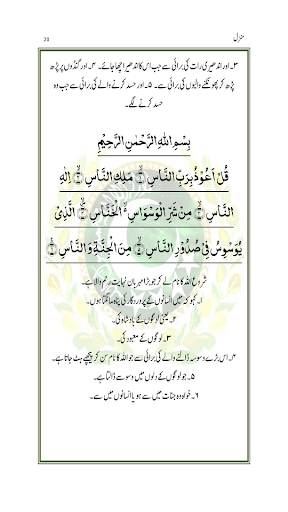 منزل 20
۳۔ اور اندھیری رات کی برائی سے جب اس کا اندھیرا چھا جائے۔ ۴۔ اور گنڈوں پر پڑھ
پڑھ کر پھونکنے والیوں کی برائی سے۔ ۵۔ اور حسد کرنے والے کی برائی سے جب وہ
حسد کرنے لگے۔
بِسْمِ اللهِ الرَّحْمٰنِ الرَّحِيْمِ
قُلْ اَعُوْذُ بِرَبِّ النَّاسِ ۝۱ مَلِكِ النَّاسِ ۝۲ اِلٰهِ
النَّاسِ ۝۳ مِنْ شَرِّ الْوَسْوَاسِ ۙ الْخَنَّاسِ ۝۴ الَّذِىْ
يُوَسْوِسُ فِىْ صُدُوْرِ النَّاسِ ۝۵ مِنَ الْجِنَّةِ وَ النَّاسِ ۝۶
شروع اللہ کا نام لے کر جو بڑا مہربان نہایت رحم والا ہے۔
۱۔ کہو کہ میں انسانوں کے پروردگار کی پناہ مانگتا ہوں۔
۲۔ یعنی لوگوں کے بادشاہ کی۔
۳۔ لوگوں کے معبود کی۔
۴۔ اس بڑے وسوسہ ڈالنے والے کی برائی سے جو اللہ کا نام سن کر پیچھے ہٹ جاتا ہے۔
۵۔ جو لوگوں کے دلوں میں وسوسے ڈالتا ہے۔
۶۔ خواہ وہ جنات میں سے ہو یا انسانوں میں سے۔